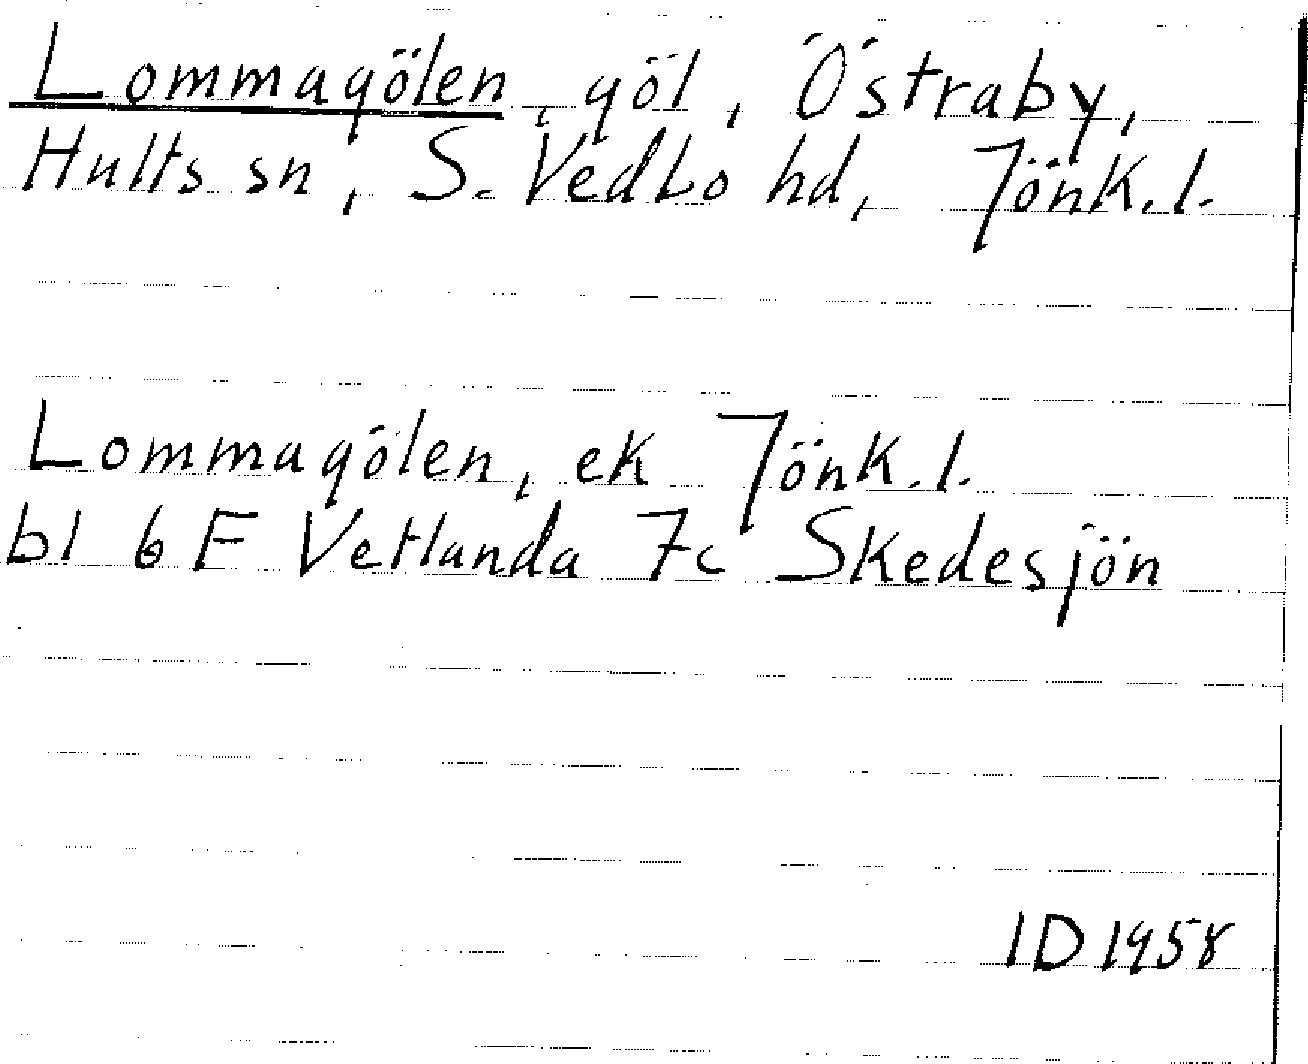 Lommagölen, göl, Östraby,
Hults sn, S. Vedbo hd, Jönk.l.
Lommagölen, ek Jönk.l.
bl 6 F Vetlanda 7c Skedesjön
ID 1958